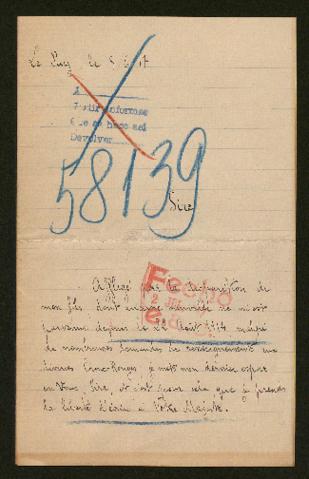 Le Puy le
A
Devolver
58139
Sire
Affligé par la disparition de
mon fils dont aucune nouvelle ne m'est
parvenue depuis le 22 Août 1914 malgré
de nombreuses demandes de renseignements aux
diverses Croix-Rouges je mets mon dernier espoir
en Vous Sire, et c'est pour cela que je prends
la liberté d'écrire à Votre Majesté.